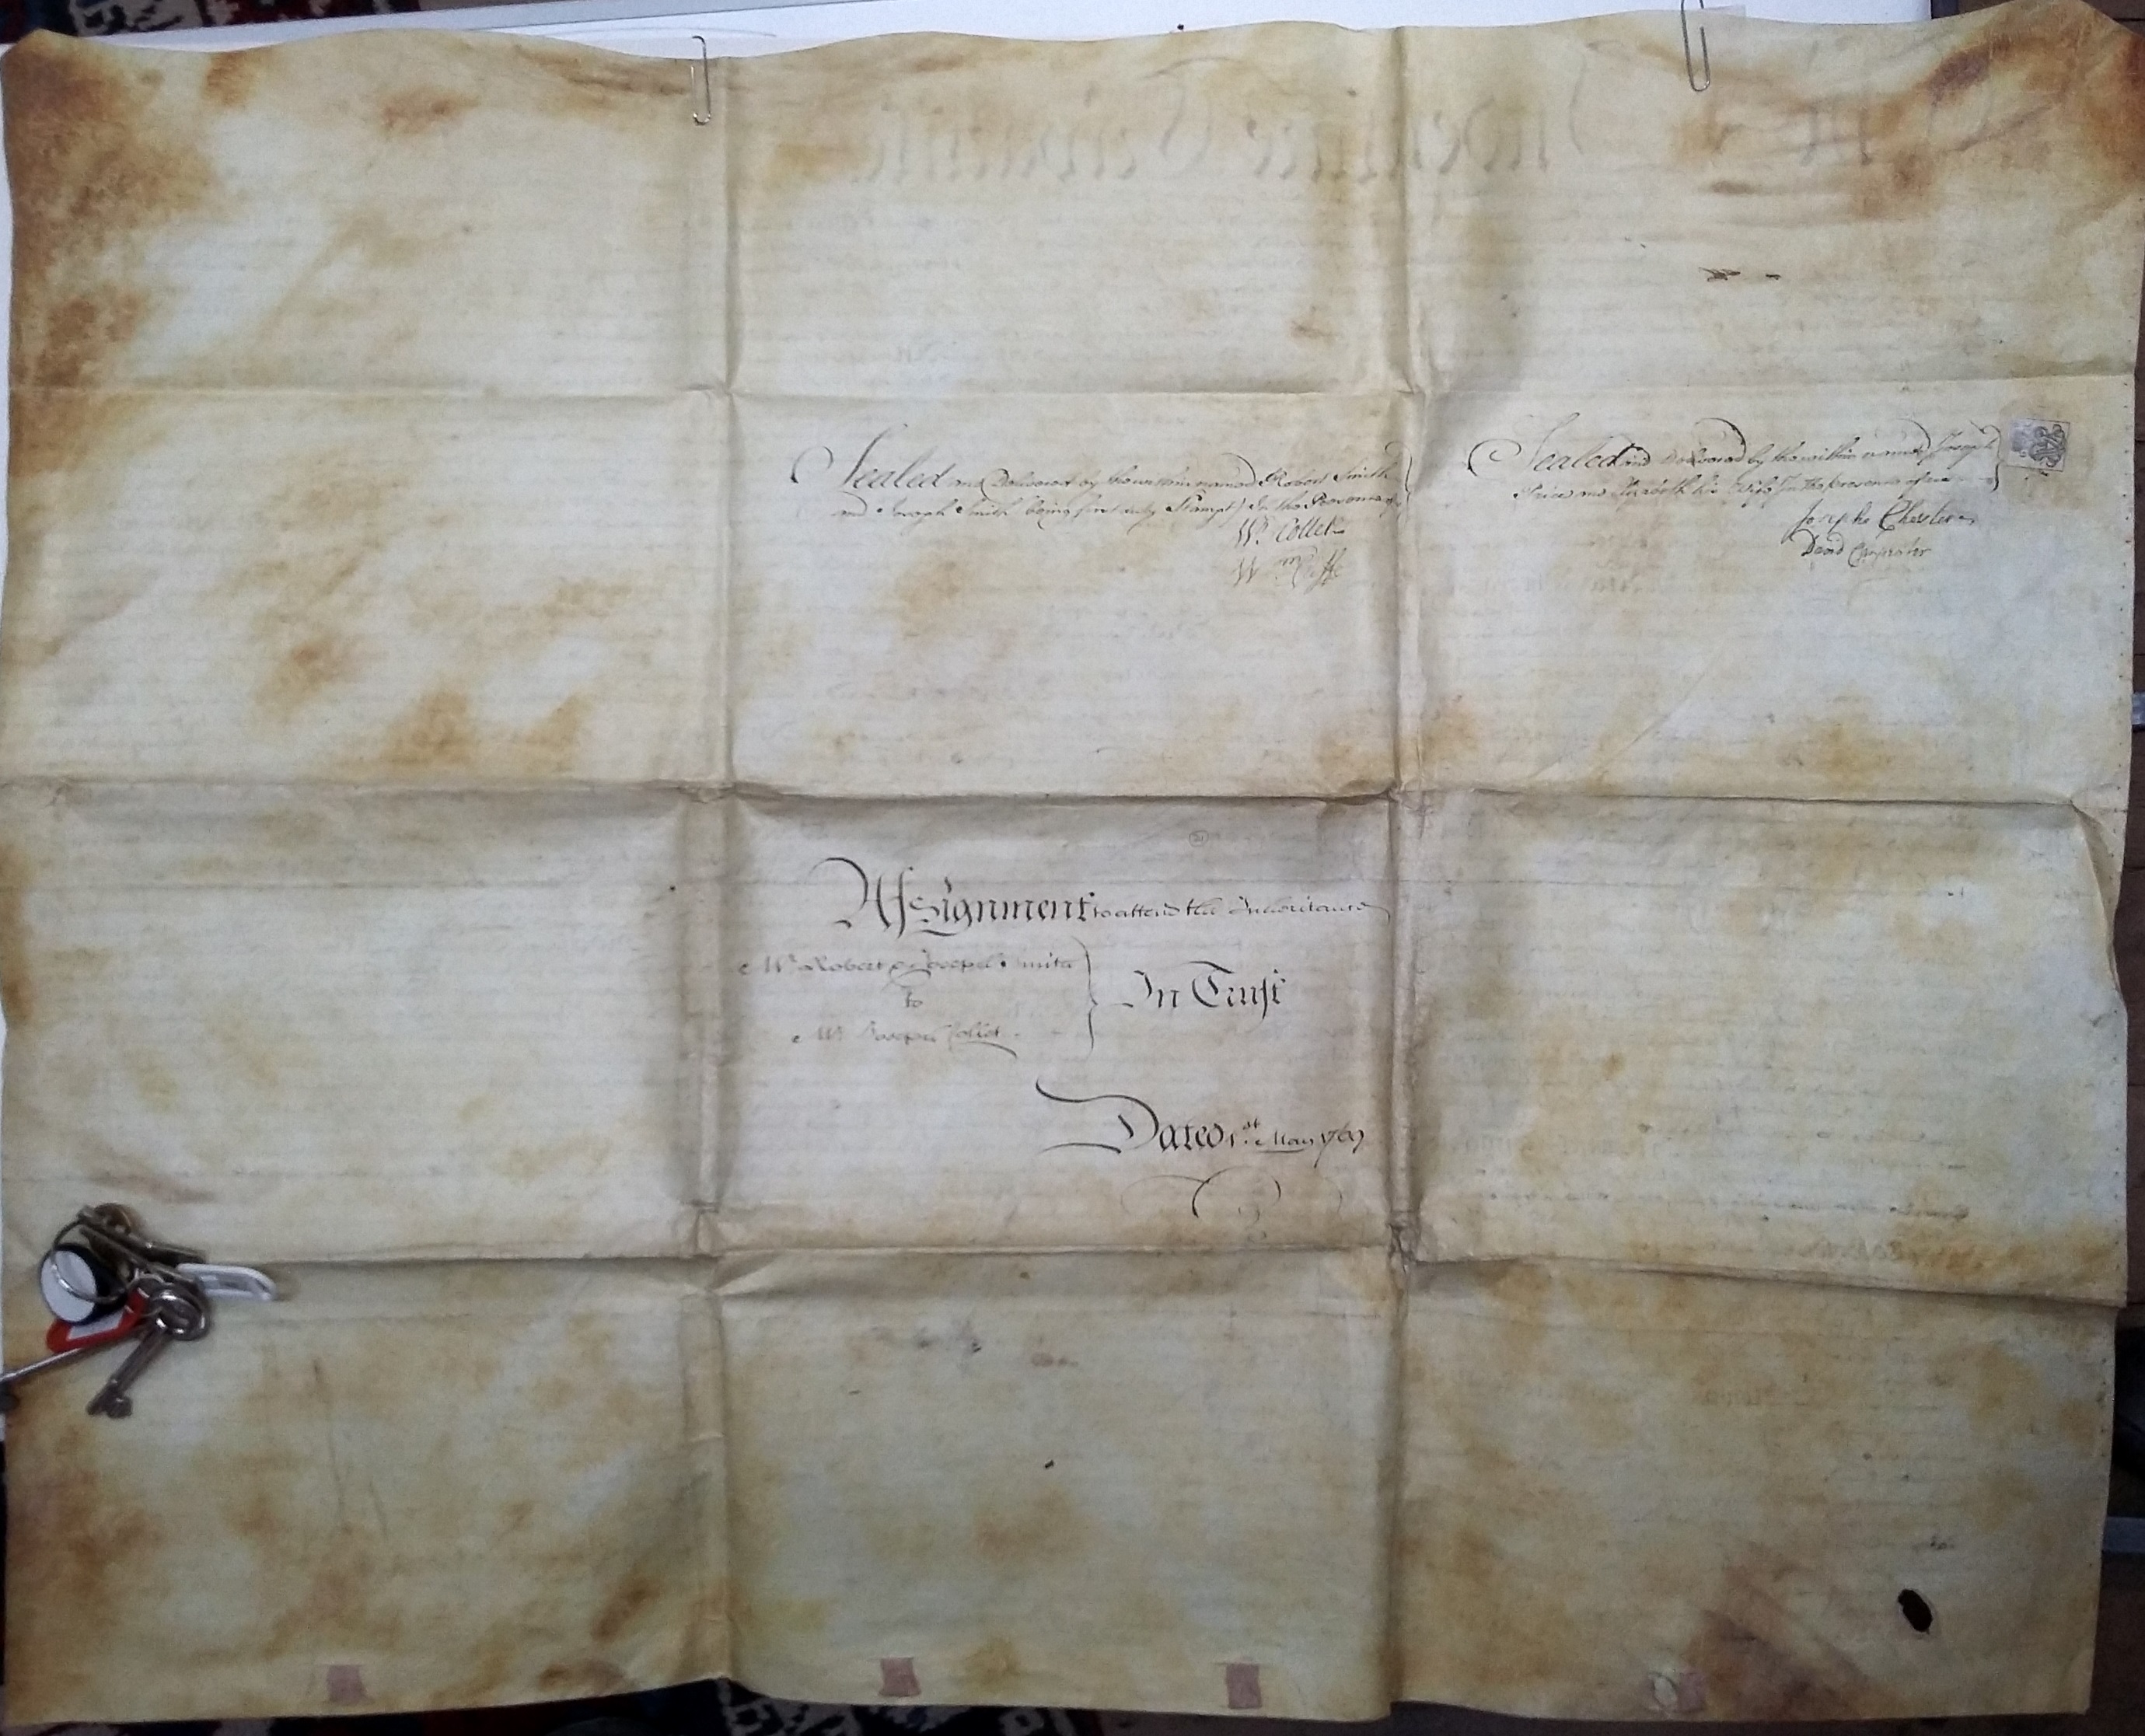 Sealed and Delivered by the within named Robert Smith
and Joseph Smith being first duly Stampt) In the Presence of
Wm. Collet
Wm
Sealed and Delivered by the within named Joseph
Price and Elizabeth his Wife In the presence of us
Joseph Chesler
David Carpenter
21
Assignment to attend the Inheritance
Mr. Robert & Joseph Smith
to
Mr. Joseph Collet
In Trust
Dated 1st. May 1769